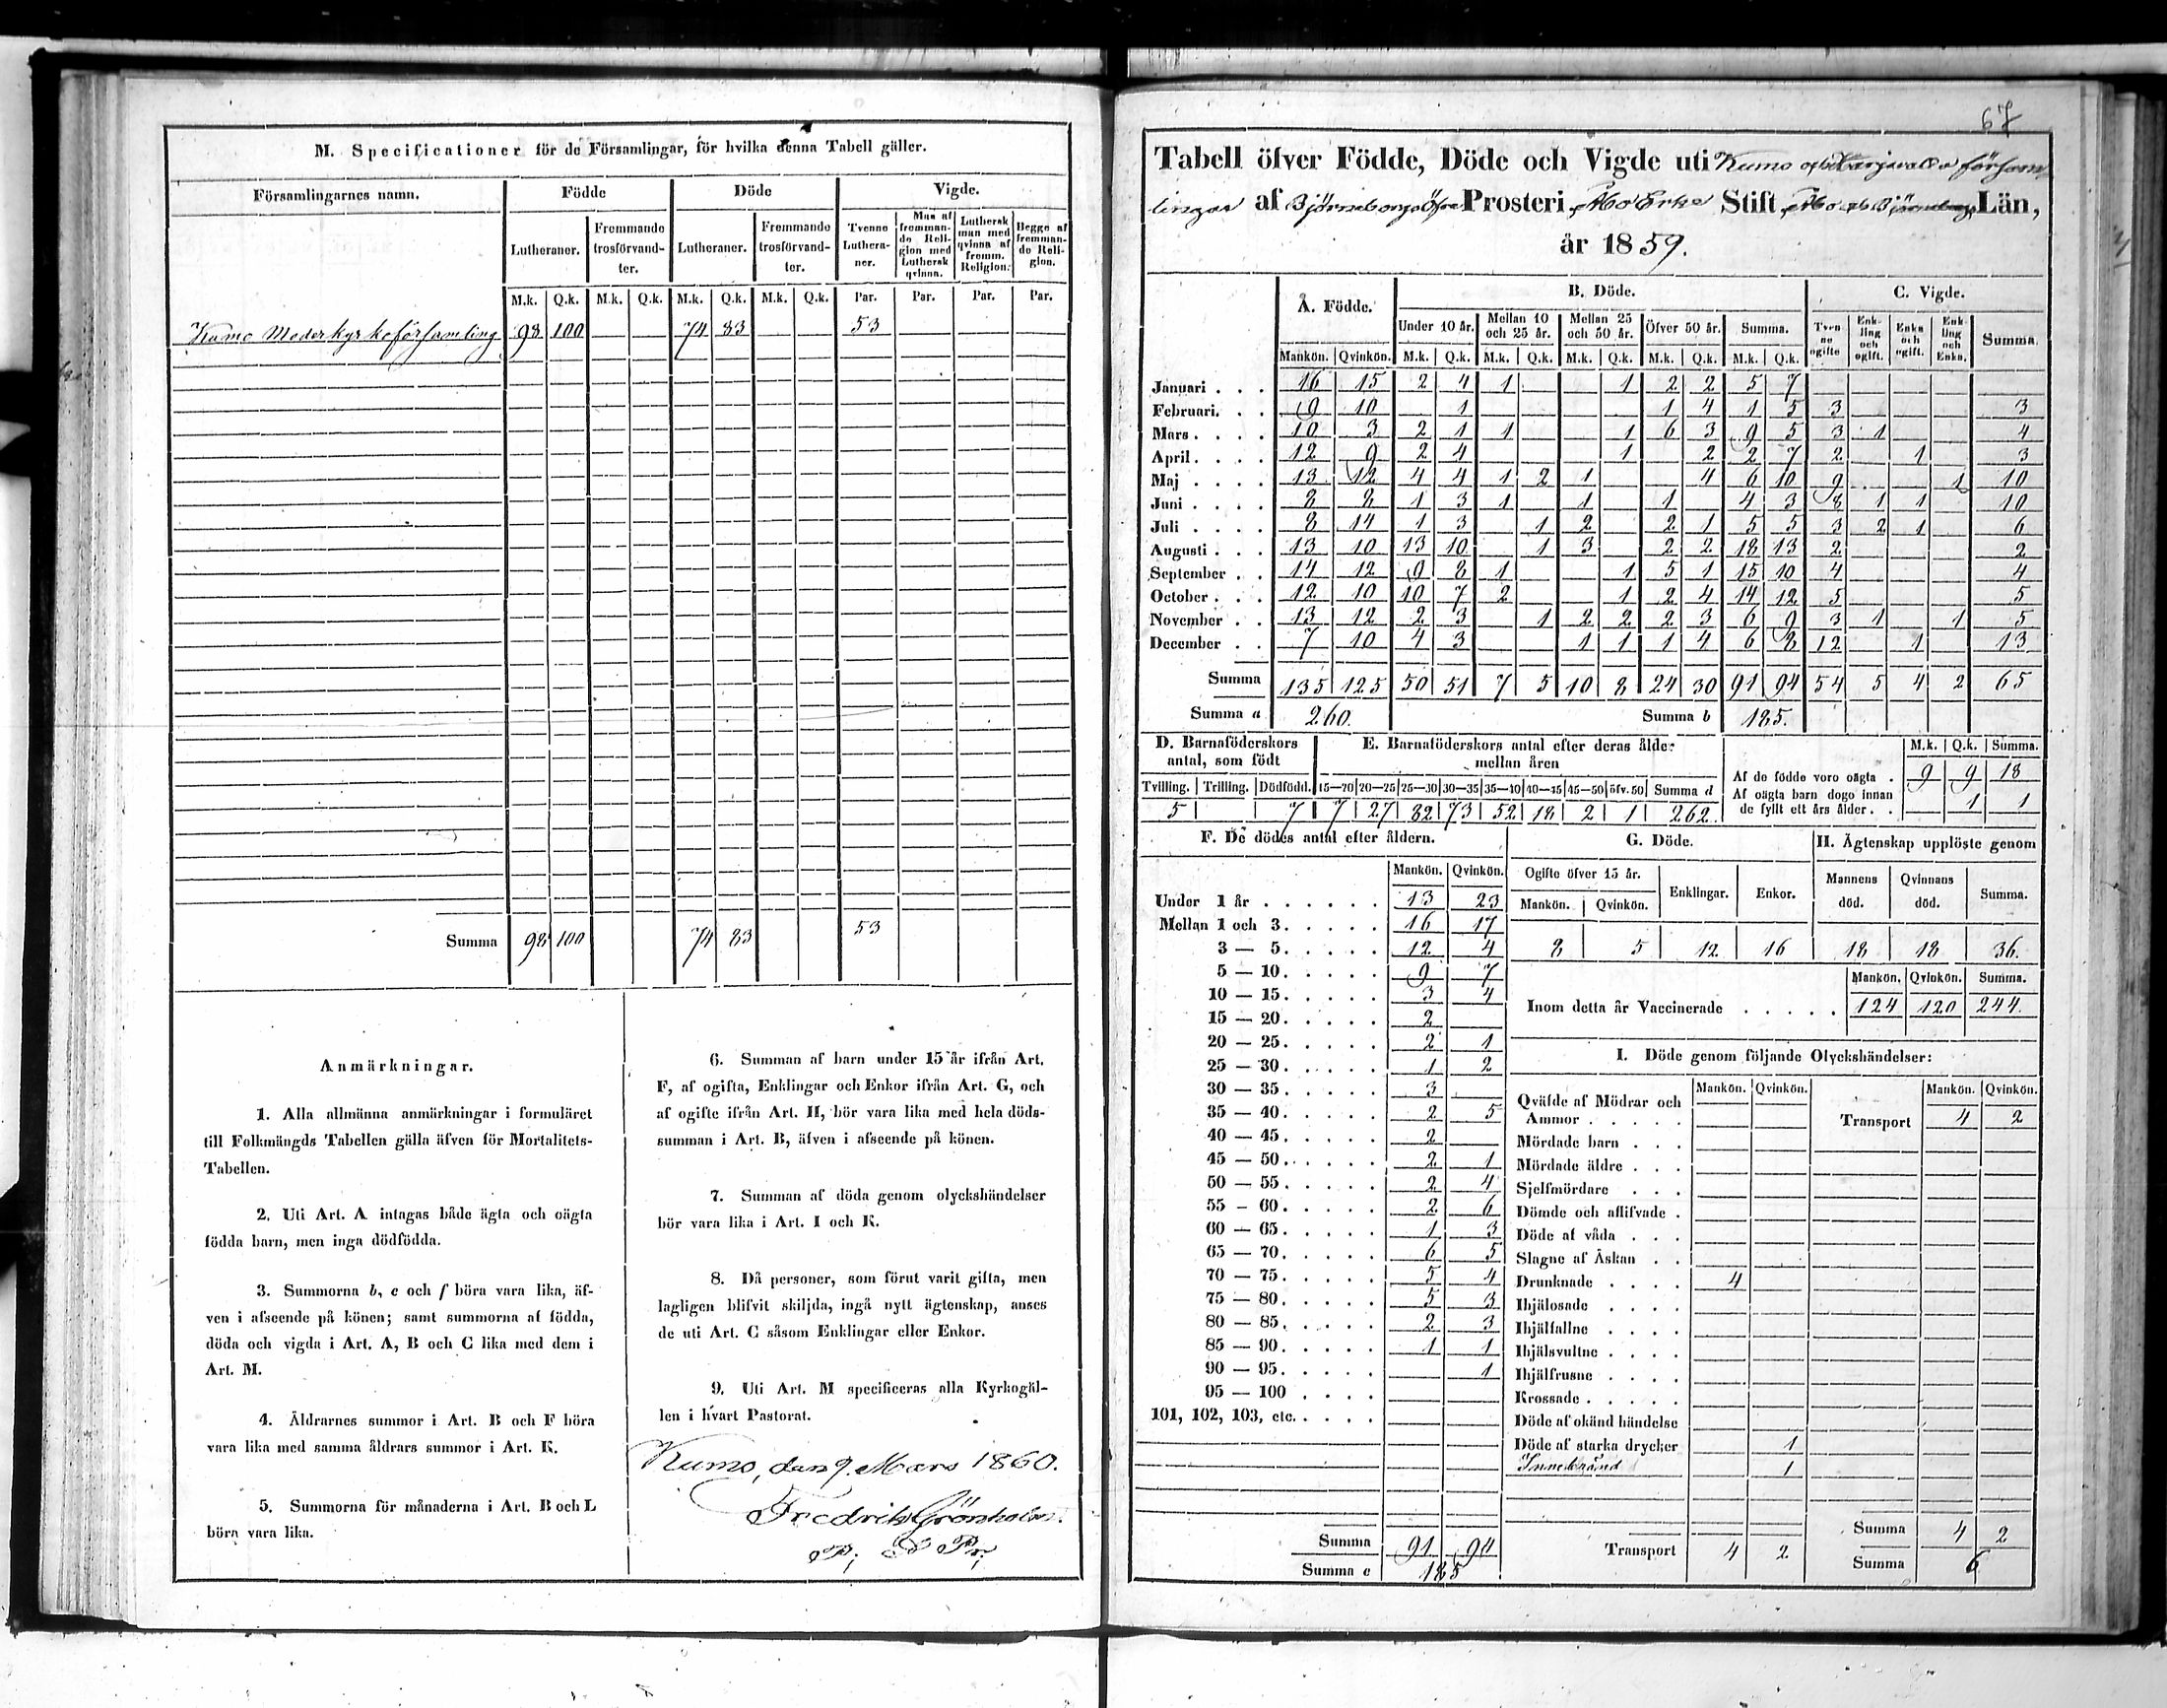 M. Specificationer för de Församlingar, för hvilka denna Tabell gäller.
Församlingarnes namn. Födde Döde Vigde.
Lutheraner. Fremmande trosförvandter. Lutheraner. Fremmande trosförvandter. Tvenne Lutheraner. Man af fremmande Religion med Luthersk qvinna. Luthersk man med qvinna af fremm. Religion. Begge af fremmande Religion.
M.k. Q.k. M.k. Q.k. M.k. Q.k. M.k. Q.k. Par. Par. Par. Par.
Kumo Moderkyrkoförsamling 98 100 74 83 53
Summa 98 100 74 83 53
Anmärkningar.
1. Alla allmänna anmärkningar i formuläret
till Folkmängds Tabellen gälla äfven för Mortalitets-
Tabellen.
2. Uti Art. A intagas både ägta och oägta
födda barn, men inga dödfödda.
3. Summorna b, c och f böra vara lika, äf-
ven i afseende på könen; samt summorna af födda,
döda och vigda i Art. A, B och C lika med dem i
Art. M.
4. Åldrarnes summor i Art. B och F böra
vara lika med samma åldrars summor i Art. K.
5. Summorna för månaderna i Art. B och L
böra vara lika.
6. Summan af barn under 15 år ifrån Art.
F, af ogifta, Enklingar och Enkor ifrån Art. G, och
af ogifte ifrån Art. H, bör vara lika med hela döds-
summan i Art. B, äfven i afseende på könen.
7. Summan af döda genom olyckshändelser
bör vara lika i Art. I och K.
8. Då personer, som förut varit gifta, men
lagligen blifvit skiljda, ingå nytt ägtenskap, anses
de uti Art. C såsom Enklingar eller Enkor.
9. Uti Art. M specificeras alla Kyrkogäl-
len i hvart Pastorat.
Kumo, den 9. Mars 1860.
Fredrik Grönholm.
67
Tabell öfver Födde, Döde och Vigde uti Kumo och Harjavalda försam
lingar af Björneborgs Öfre Prosteri, Åbo Erke Stift, Åbo och Björneborgs Län,
år 1859.
A. Födde. B. Döde. C. Vigde.
Under 10 år. Mellan 10 och 25 år. Mellan 25 och 50 år. Öfver 50 år. Summa. Tvenne ogifte Enkling och ogift. Enka och ogift. Enkling och Enka. Summa.
Mankön. Qvinkön. M.k. Q.k. M.k. Q.k. M.k. Q.k. M.k. Q.k. M.k. Q.k.
Januari . . . 16 15 2 4 1 1 2 2 5 7
Februari. . . 9 10 1 1 4 1 5 3 3
Mars . . . . 10 3 2 1 1 1 6 3 9 5 3 1 4
April . . . . 12 9 2 4 1 2 2 7 2 1 3
Maj . . . . 13 12 4 4 1 2 1 4 6 10 9 1 10
Juni . . . . 8 8 1 3 1 1 1 4 3 8 1 1 10
Juli . . . . 8 14 1 3 1 2 2 1 5 5 3 2 1 6
Augusti . . . 13 10 13 10 1 3 2 2 18 13 2 2
September . . 14 12 9 8 1 1 5 1 15 10 4 4
October . . . 12 10 10 7 2 1 2 4 14 12 5 5
November . . 13 12 2 3 1 2 2 2 3 6 9 3 1 1 5
December . . 7 10 4 3 1 1 1 4 6 8 12 1 13
Summa 135 125 50 51 7 5 10 8 24 30 91 94 54 5 4 2 65
Summa a 260. Summa b 185.
D. Barnaföderskors antal, som födt
Tvilling. Trilling. Dödfödd.
5 7
E. Barnaföderskors antal efter deras ålder mellan åren
15—20 20—25 25—30 30—35 35—40 40—45 45—50 öfv. 50 Summa d
7 27 82 73 52 18 2 1 262.
M.k. Q.k. Summa.
Af de födde voro oägta . 9 9 18
Af oägta barn dogo innan
de fyllt ett års ålder . . 1 1
F. De dödes antal efter åldern.
Mankön. Qvinkön.
Under 1 år . . . . . . 13 23
Mellan 1 och 3. . . . . 16 17
3 — 5. . . . . 12 4
5 — 10. . . . . 9 7
10 — 15. . . . . 3 4
15 — 20. . . . . 2
20 — 25. . . . . 2 1
25 — 30. . . . . 1 2
30 — 35. . . . . 3
35 — 40. . . . . 2 5
40 — 45. . . . . 2
45 — 50. . . . . 2 1
50 — 55. . . . . 2 4
55 — 60. . . . . 2 6
60 — 65. . . . . 1 3
65 — 70. . . . . 6 5
70 — 75. . . . . 5 4
75 — 80. . . . . 5 3
80 — 85. . . . . 2 3
85 — 90. . . . . 1 1
90 — 95. . . . . 1
95 — 100 . . . .
101, 102, 103, etc. . . . .
Summa 91 94
Summa c 185
G. Döde.
Ogifte öfver 15 år. Enklingar. Enkor.
Mankön. Qvinkön.
8 5 12 16
H. Ägtenskap upplöste genom
Mannens död. Qvinnans död. Summa.
18 18 36.
Mankön. Qvinkön. Summa.
Inom detta år Vaccinerade . . . . . 124 120 244.
I. Döde genom följande Olyckshändelser:
Mankön. Qvinkön. Mankön. Qvinkön.
Qväfde af Mödrar och
Ammor . . . . . Transport 4 2
Mördade barn . . .
Mördade äldre . . .
Sjelfmördare . . .
Dömde och aflifvade .
Döde af våda . . .
Slagne af Åskan . .
Drunknade . . . . 4
Ihjälosade . . . .
Ihjälfallne . . . .
Ihjälsvultne . . . .
Ihjälfrusne . . . .
Krossade . . . . .
Döde af okänd händelse
Döde af starka drycker 1
Innebränd 1
Summa 4 2
Transport 4 2
Summa 6